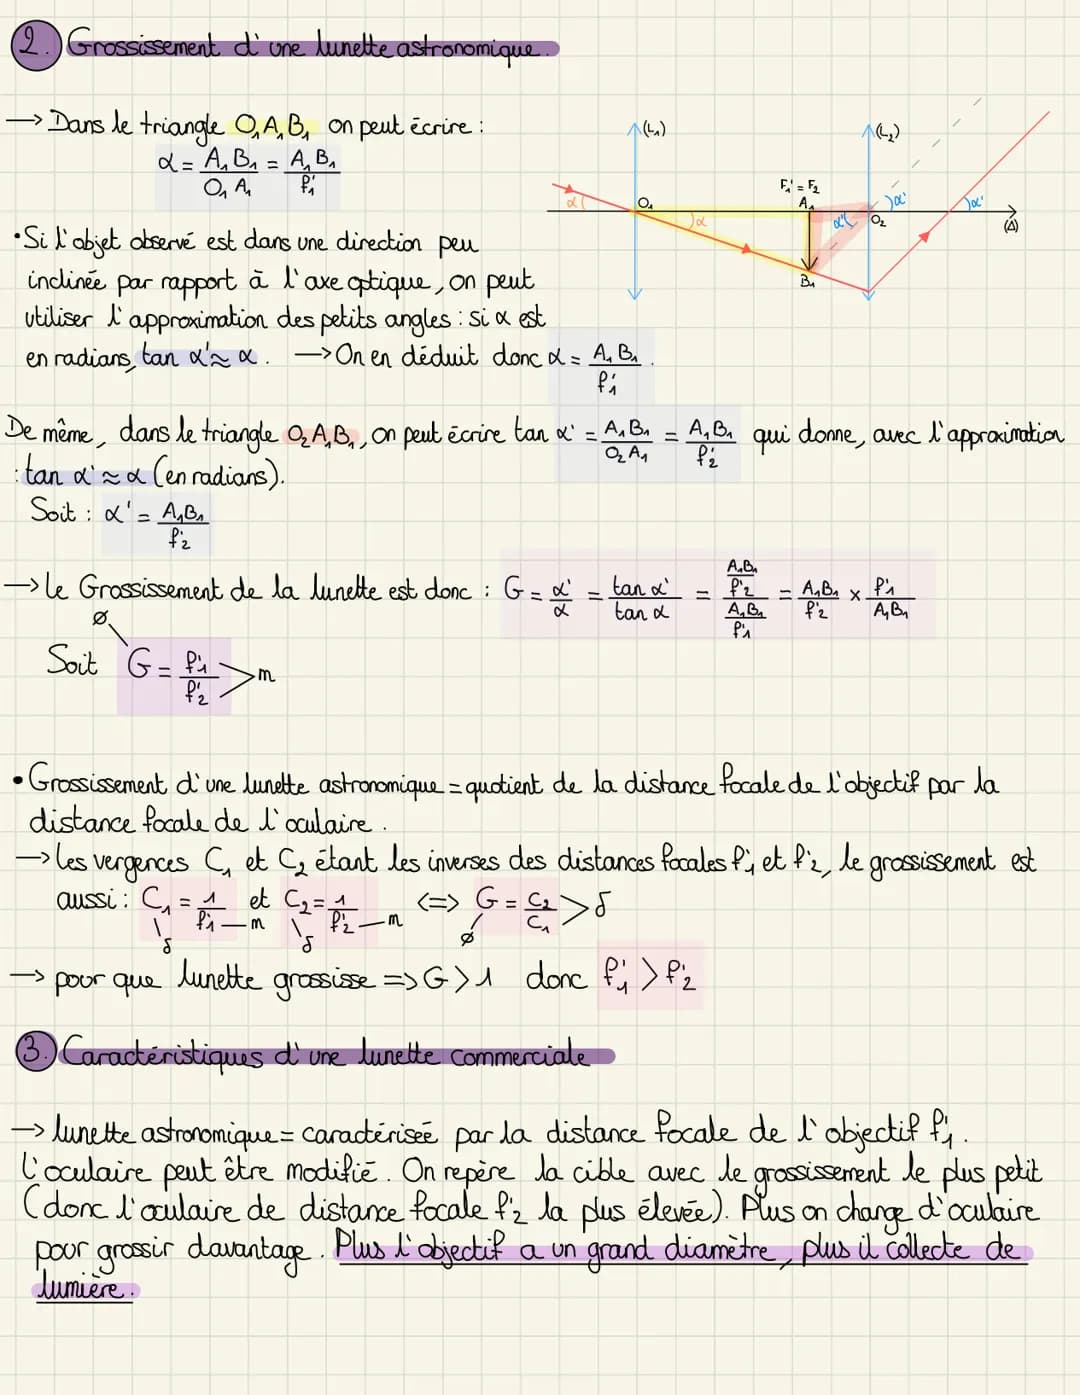 2. Grossissement d'une lunette astronomique.
→ Dans le triangle O₁A₁B₁ on peut écrire :
α = A₁B₁/O₁A₁ = A₁B₁/f'₁
(L₁)
(L₂)
F₁' = F₂
A₁
α
O₁
α
α'
O₂
α'
α'
(Δ)
B₁
• Si l'objet observé est dans une direction peu
inclinée par rapport à l'axe optique, on peut
utiliser l'approximation des petits angles : si α est
en radians, tan α' ≈ α. → On en déduit donc α = A₁B₁/f'₁.
De même, dans le triangle O₂A₁B₁, on peut écrire tan α' = A₁B₁/O₂A₁ = A₁B₁/f'₂ qui donne, avec l'approximation
: tan α' ≈ α (en radians).
Soit : α' = A₁B₁/f'₂
→ le Grossissement de la lunette est donc : G = α'/α = tan α'/tan α = (A₁B₁/f'₂)/(A₁B₁/f'₁) = A₁B₁/f'₂ × f'₁/A₁B₁
ø
Soit G = f'₁/f'₂ > m
• Grossissement d'une lunette astronomique = quotient de la distance focale de l'objectif par la
distance focale de l'oculaire.
→ les vergences C₁ et C₂ étant les inverses des distances focales f'₁ et f'₂, le grossissement est
aussi : C₁ = 1/f'₁ — m et C₂ = 1/f'₂ — m <=> G = C₂/C₁ > δ
δ δ ø
→ pour que lunette grossisse => G > 1 donc f'₁ > f'₂
3. Caractéristiques d'une lunette commerciale
→ lunette astronomique = caractérisée par la distance focale de l'objectif f'₁.
L'oculaire peut être modifié. On repère la cible avec le grossissement le plus petit
(donc l'oculaire de distance focale f'₂ la plus élevée). Plus on change d'oculaire
pour grossir davantage. Plus l'objectif a un grand diamètre, plus il collecte de
lumière.